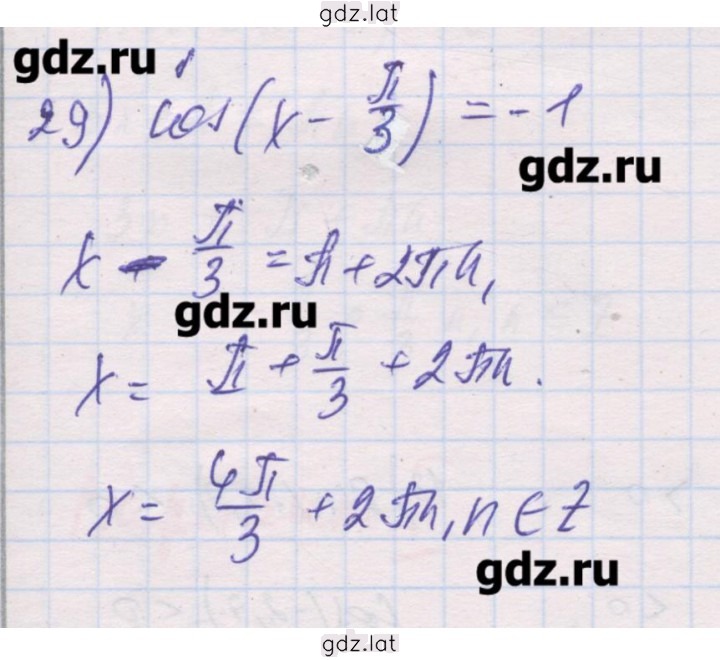 gdz.lat
gdz.ru
29) cos(x - π/3) = -1
gdz.ru
x - π/3 = π + 2πn,
gdz.ru
x = π + π/3 + 2πn.
x = 4π/3 + 2πn, n ∈ Z
gdz.ru
gdz.lat